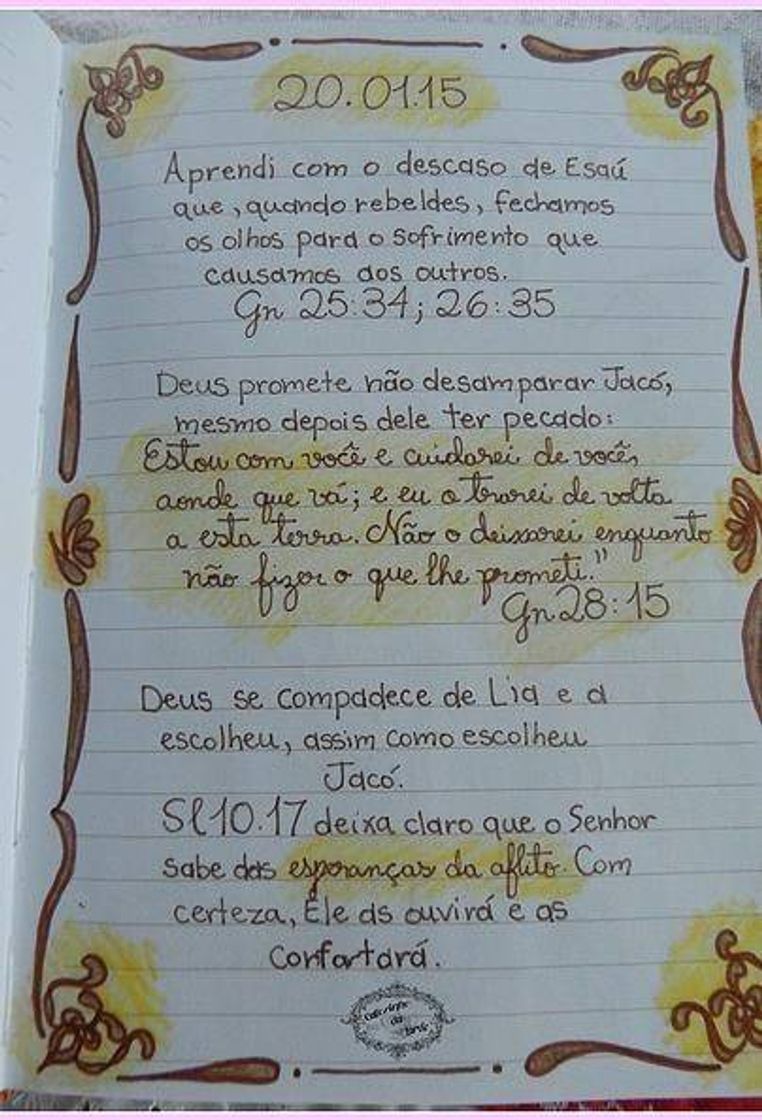 20.01.15
Aprendi com o descaso de Esaú
que, quando rebeldes, fechamos
os olhos para o sofrimento que
causamos aos outros.
Gn 25:34; 26:35
Deus promete não desamparar Jacó,
mesmo depois dele ter pecado:
Estou com você e cuidarei de você,
aonde que vá; e eu o trarei de volta
a esta terra. Não o deixarei enquanto
não fizer o que lhe prometi."
Gn 28:15
Deus se compadece de Lia e a
escolheu, assim como escolheu
Jacó.
Sl 10.17 deixa claro que o Senhor
sabe das esperanças da aflito. Com
certeza, Ele as ouvirá e as
confortará.
da